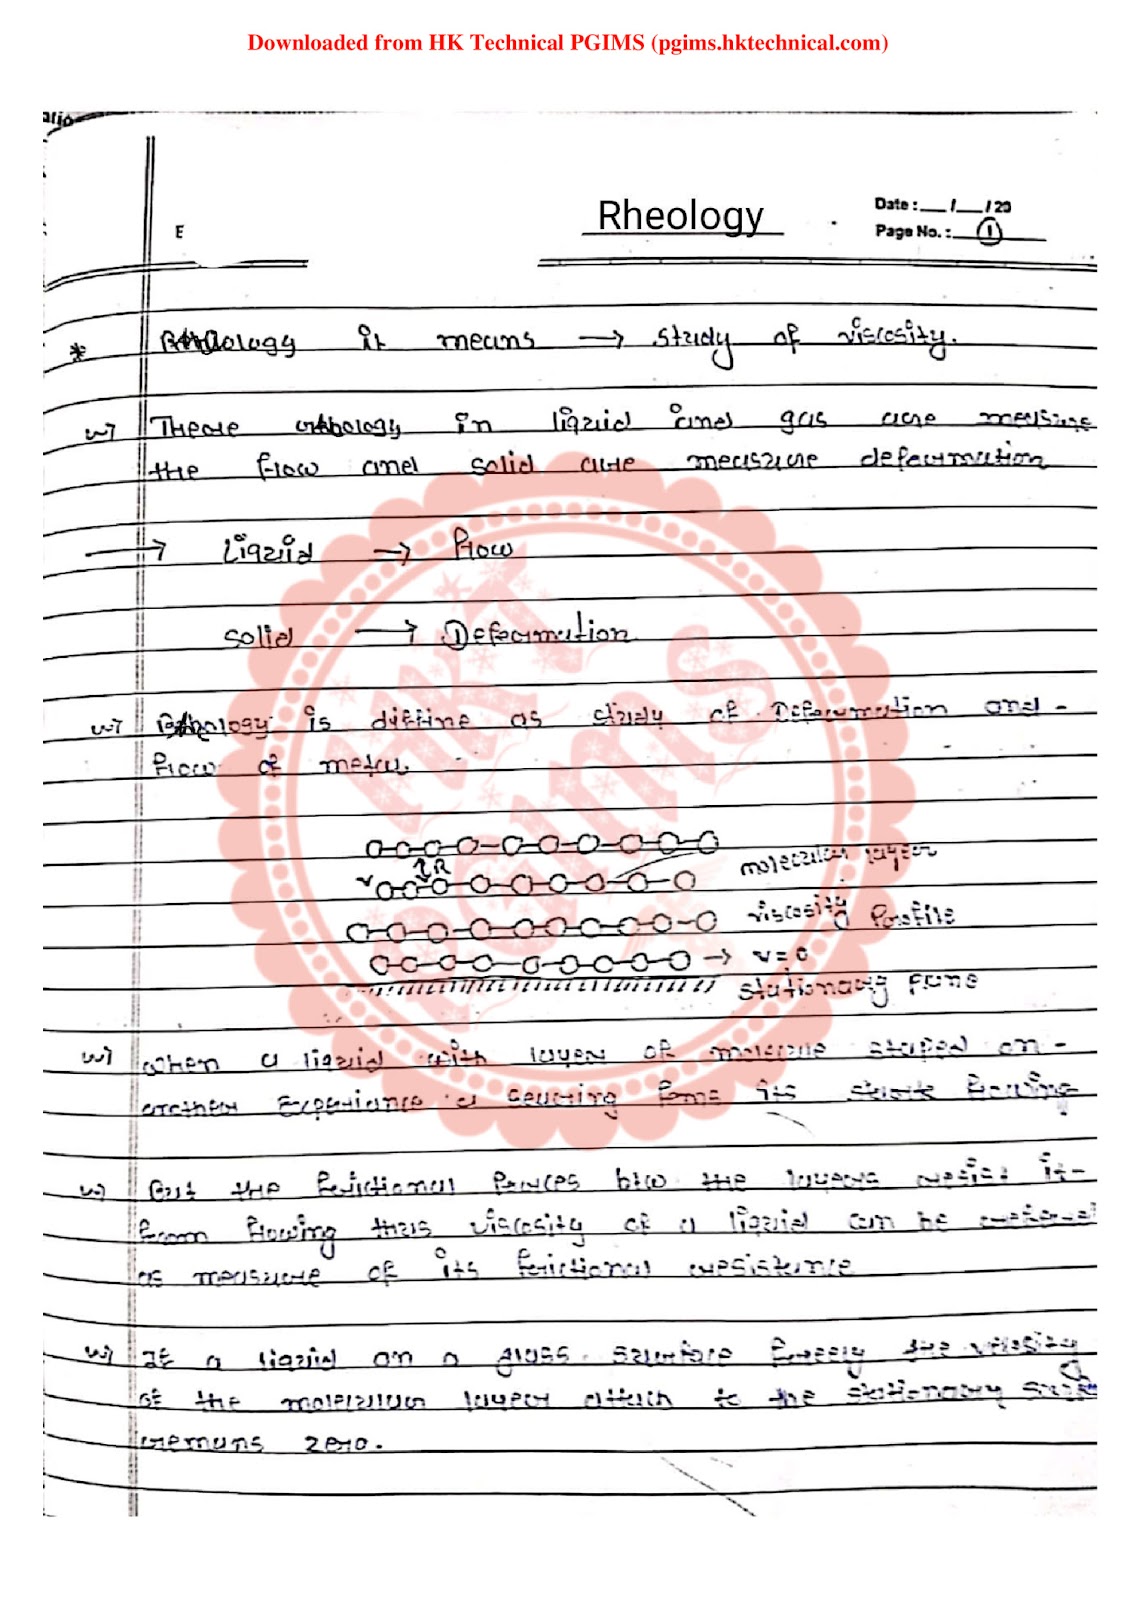 Downloaded from HK Technical PGIMS (pgims.hktechnical.com)
Rheology
Date : __/__/20
Page No. : 1
E
* it means → study of viscosity.
in liquid and gas are measure
the flow and solid are measure deformation
→ liquid → flow
solid → Deformation
is diffine as study of Deformation and -
flow of
R
v
molecular layer
viscosity Profile
→ v = 0
stationary
when a liquid with layer of molecule on -
a its flowing
But the frictional forces btw the layers resist it -
from flowing thus viscosity of a liquid can be
as measure of its frictional resistance
If a liquid on a glass surface freely the
of the molecular layer attach to the stationary
remans zero.
HKT
PGIMS